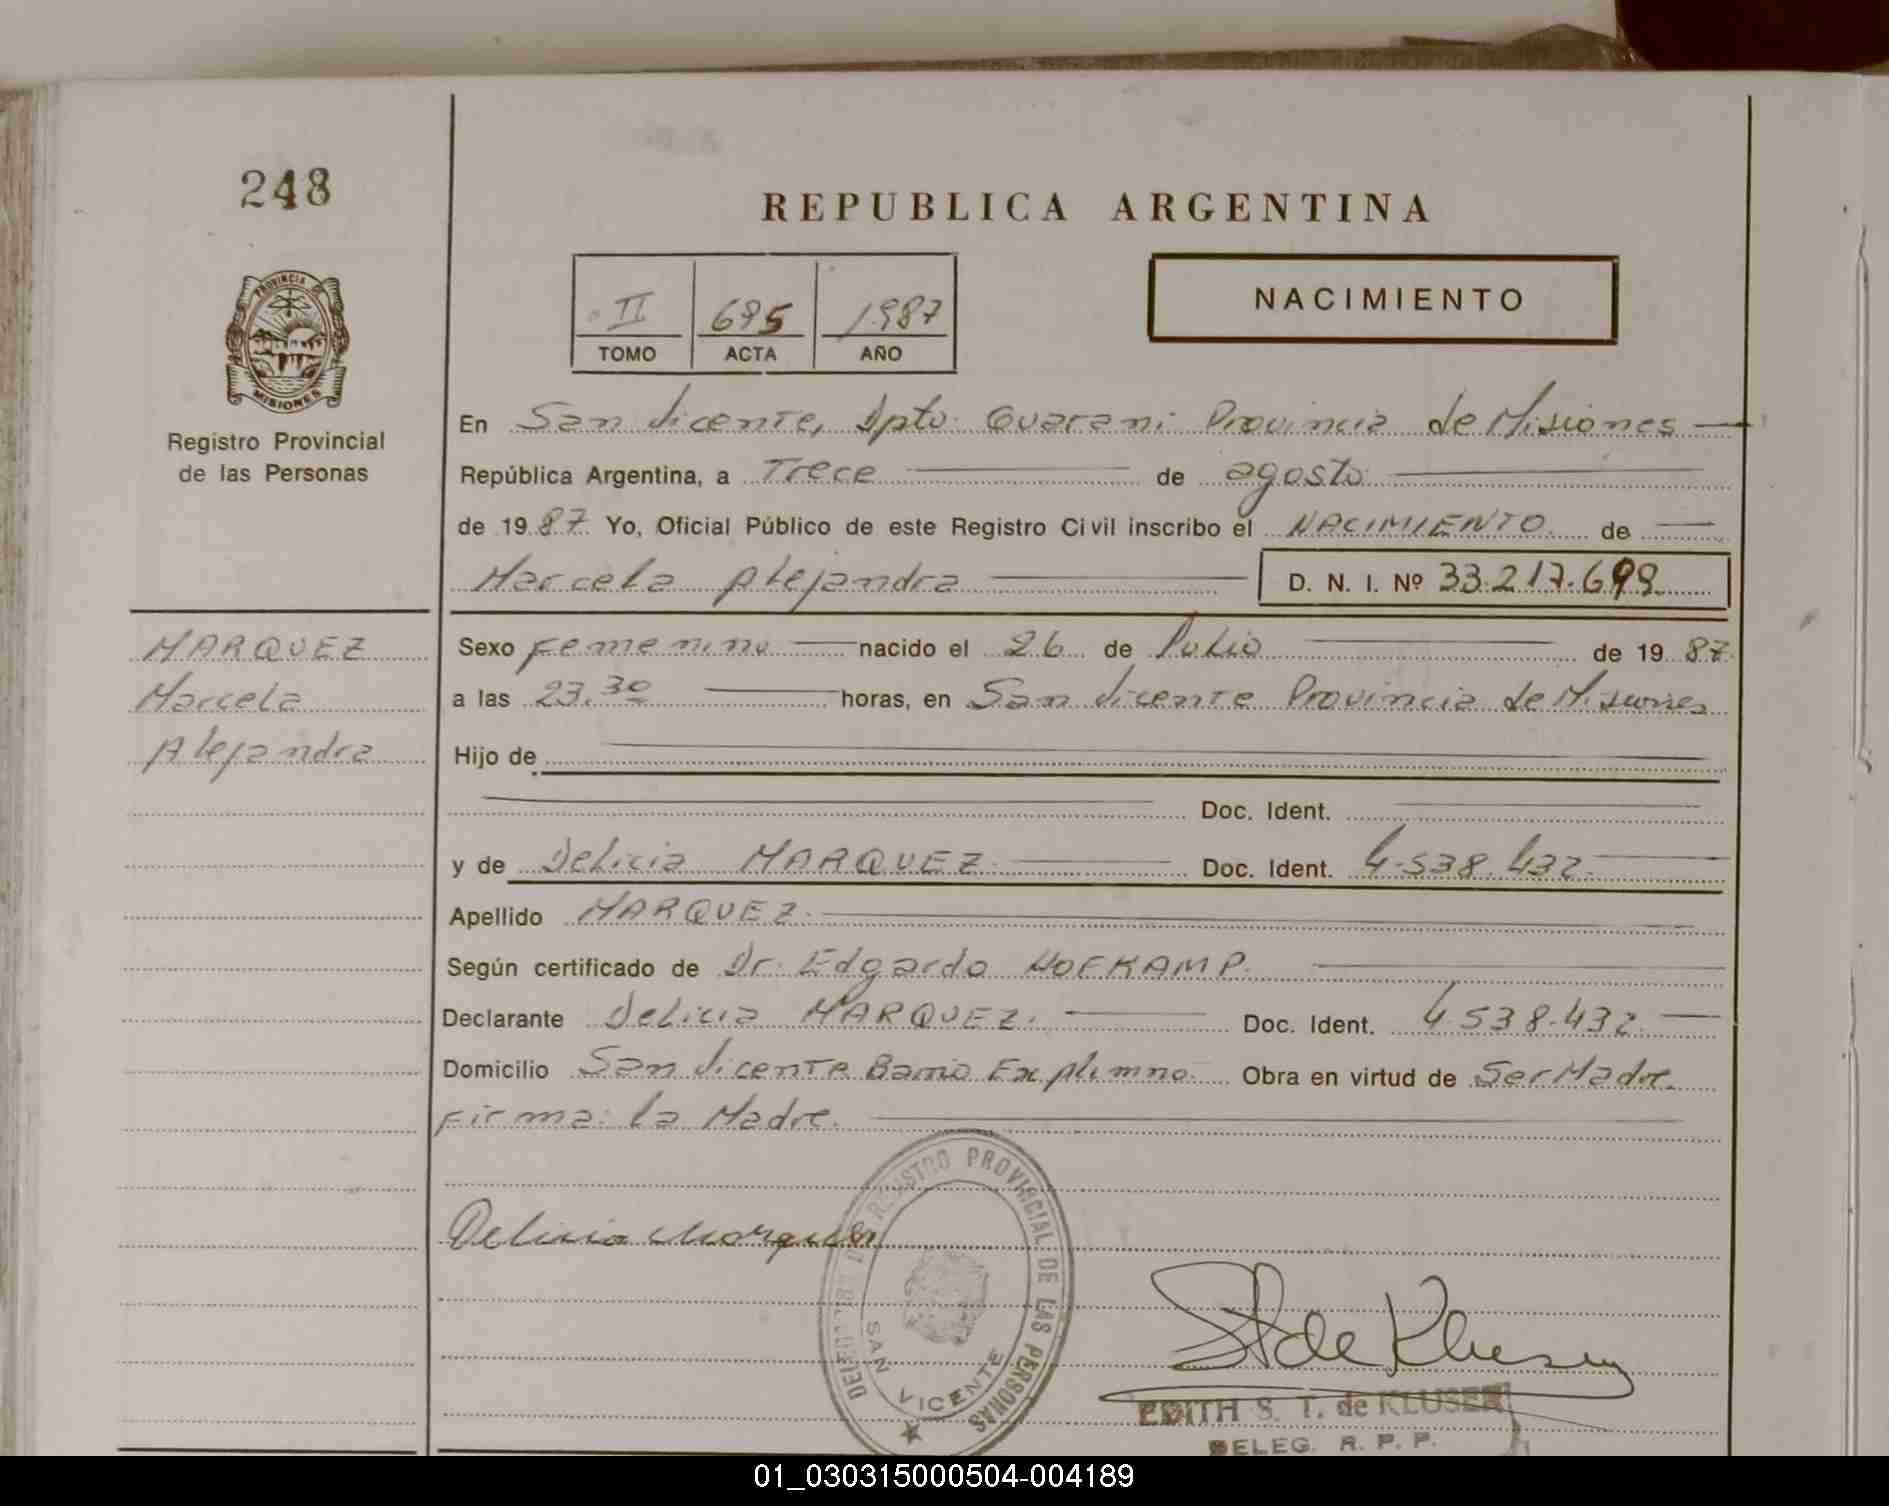 248
REPUBLICA ARGENTINA
II 695 1987
TOMO ACTA AÑO
NACIMIENTO
PROVINCIA DE MISIONES
Registro Provincial
de las Personas
En San Vicente, Dpto. Guarani Provincia de Misiones
República Argentina, a Trece de agosto
de 1987. Yo, Oficial Público de este Registro Civil inscribo el NACIMIENTO de
Marcela Alejandra D. N. I. Nº 33.217.699
MARQUEZ
Marcela
Alejandra
Sexo Femenino nacido el 26 de Julio de 1987
a las 23.30 horas, en San Vicente Provincia de Misiones
Hijo de
Doc. Ident.
y de Delicia MARQUEZ. Doc. Ident. 4.538.432
Apellido MARQUEZ.
Según certificado de Dr. Edgardo HOFKAMP.
Declarante Delicia MARQUEZ. Doc. Ident. 4.538.432
Domicilio San Vicente Barrio Obra en virtud de Ser Madre.
Firma: la Madre.
Delicia Marquez
DELEGACION DEL REGISTRO PROVINCIAL DE LAS PERSONAS
SAN VICENTE
EDITH S. T. de KLUSER
DELEG. R. P. P.
01_030315000504-004189